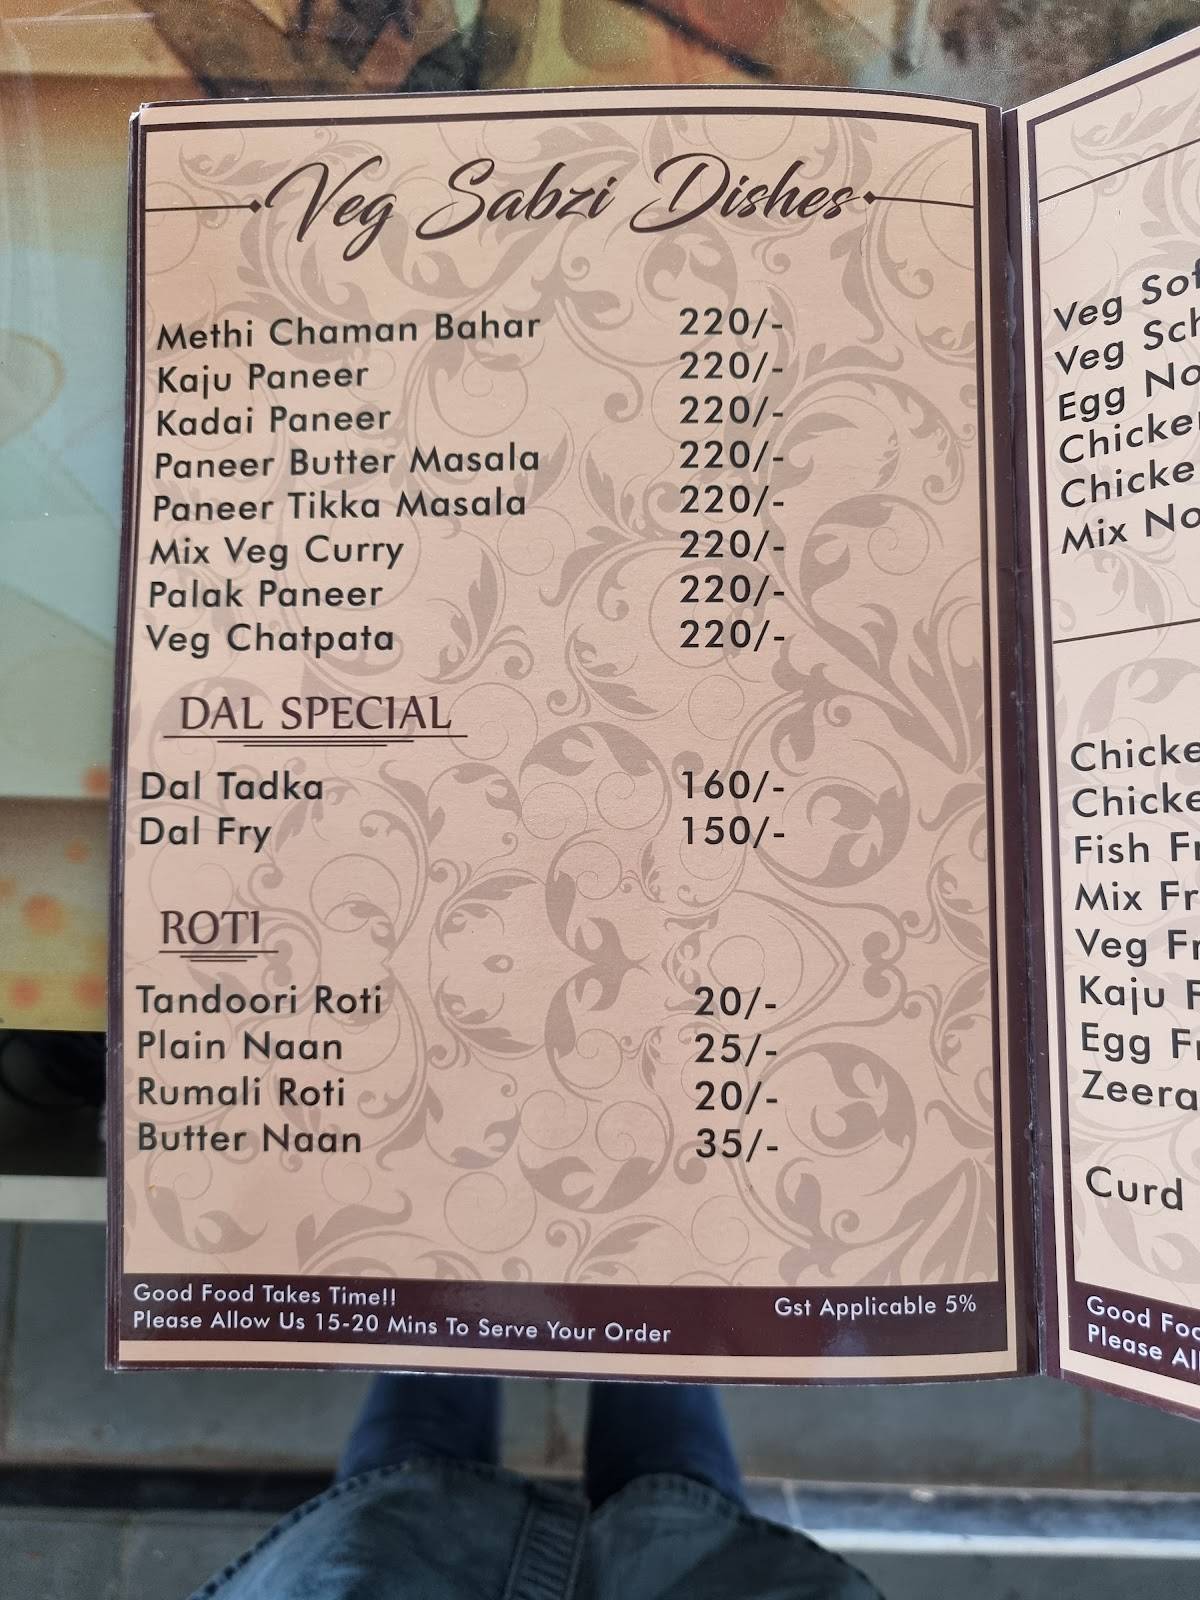 Veg Sabzi Dishes
Methi Chaman Bahar 220/-
Kaju Paneer 220/-
Kadai Paneer 220/-
Paneer Butter Masala 220/-
Paneer Tikka Masala 220/-
Mix Veg Curry 220/-
Palak Paneer 220/-
Veg Chatpata 220/-
DAL SPECIAL
Dal Tadka 160/-
Dal Fry 150/-
ROTI
Tandoori Roti 20/-
Plain Naan 25/-
Rumali Roti 20/-
Butter Naan 35/-
Good Food Takes Time!!
Please Allow Us 15-20 Mins To Serve Your Order
Gst Applicable 5%
Veg
Veg
Egg
Mix
Fish
Mix
Veg
Kaju
Egg
Zeera
Curd
Good
Please